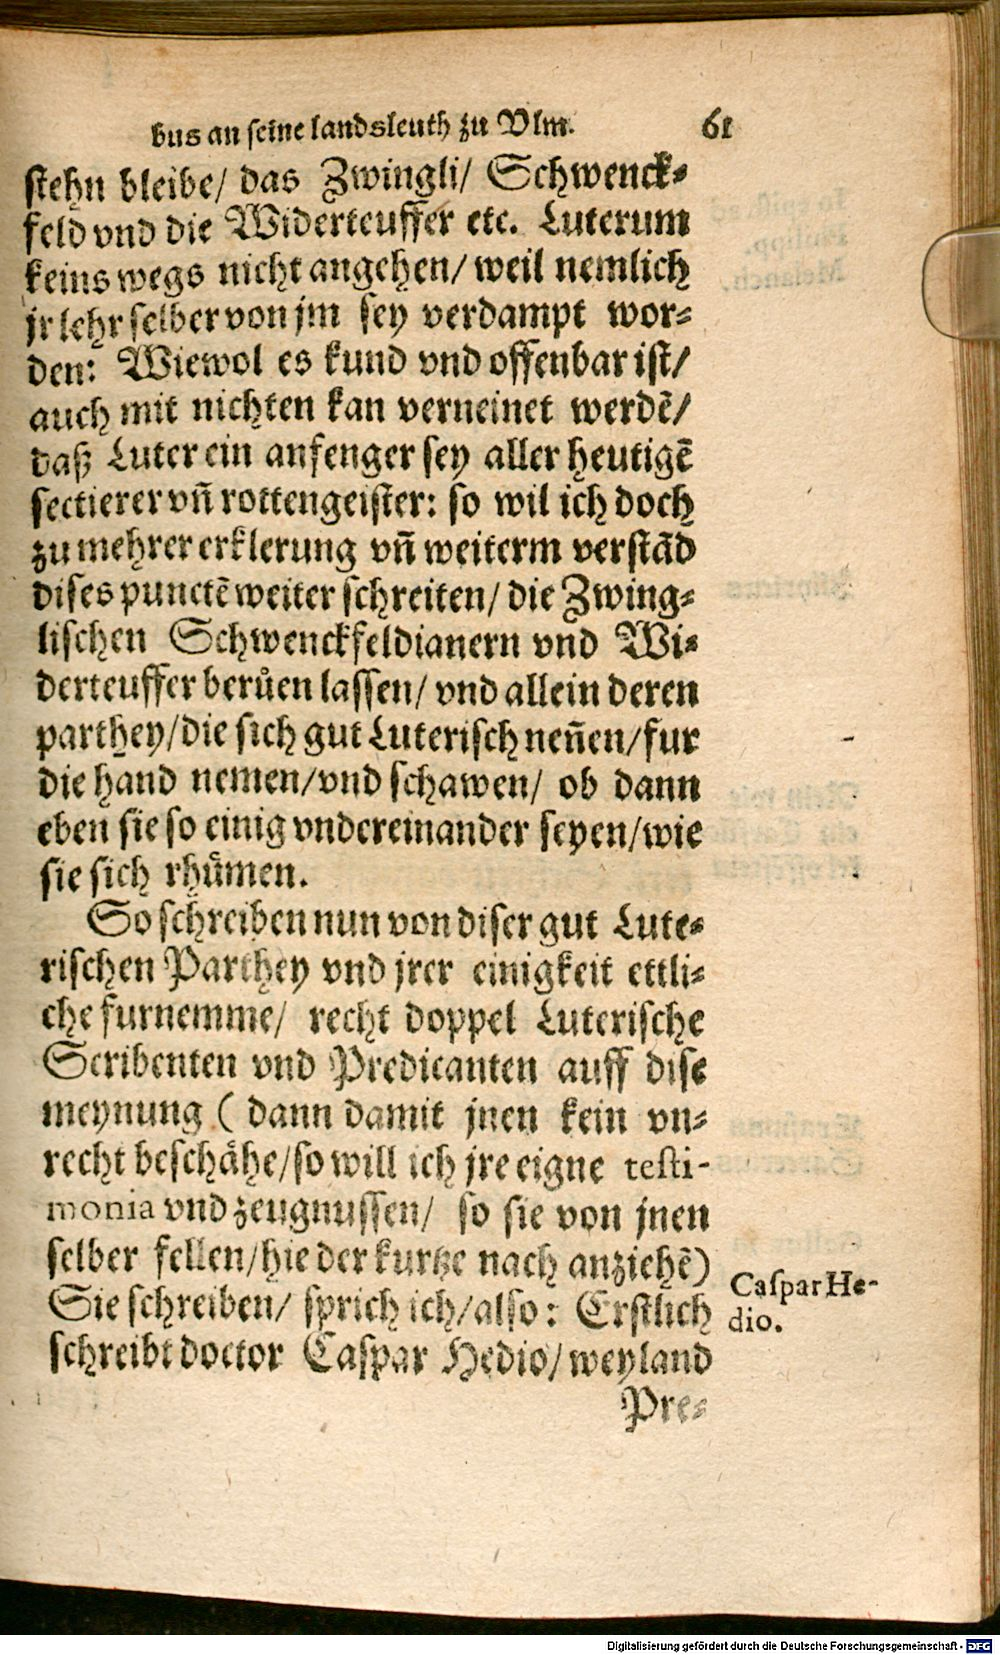 bus an seine landsleuth zu Vlm. 61
stehn bleibe/ das Zwingli/ Schwenck-
feld vnd die Widerteuffer etc. Luterum
keins wegs nicht angehen/ weil nemlich
jr lehr selber von jm sey verdampt wor-
den: Wiewol es kund vnd offenbar ist/
auch mit nichten kan verneinet werdẽ/
daß Luter ein anfenger sey aller heutigẽ
sectierer vñ rottengeister: so wil ich doch
zu mehrer erklerung vñ weiterm verstãd
dises punctẽ weiter schreiten/ die Zwing-
lischen Schwenckfeldianern vnd Wi-
derteuffer berůen lassen/ vnd allein deren
parthey/die sich gut Luterisch neñen/fur
die hand nemen/vnd schawen/ ob dann
eben sie so einig vndereinander seyen/wie
sie sich rhuͤmen.
So schreiben nun von diser gut Lute-
rischen Parthey vnd jrer einigkeit ettli-
che furnemme/ recht doppel Luterische
Scribenten vnd Predicanten auff dise
meynung ( dann damit jnen kein vn-
recht beschaͤhe/so will ich jre eigne testi-
monia vnd zeugnussen/ so sie von jnen
selber fellen/hie der kurtze nach anziehẽ)
Sie schreiben/ sprich ich/also: Erstlich
schreibt doctor Caspar Hedio/weyland
Caspar He-
dio.
Pre-
Digitalisierung gefördert durch die Deutsche Forschungsgemeinschaft - DFG